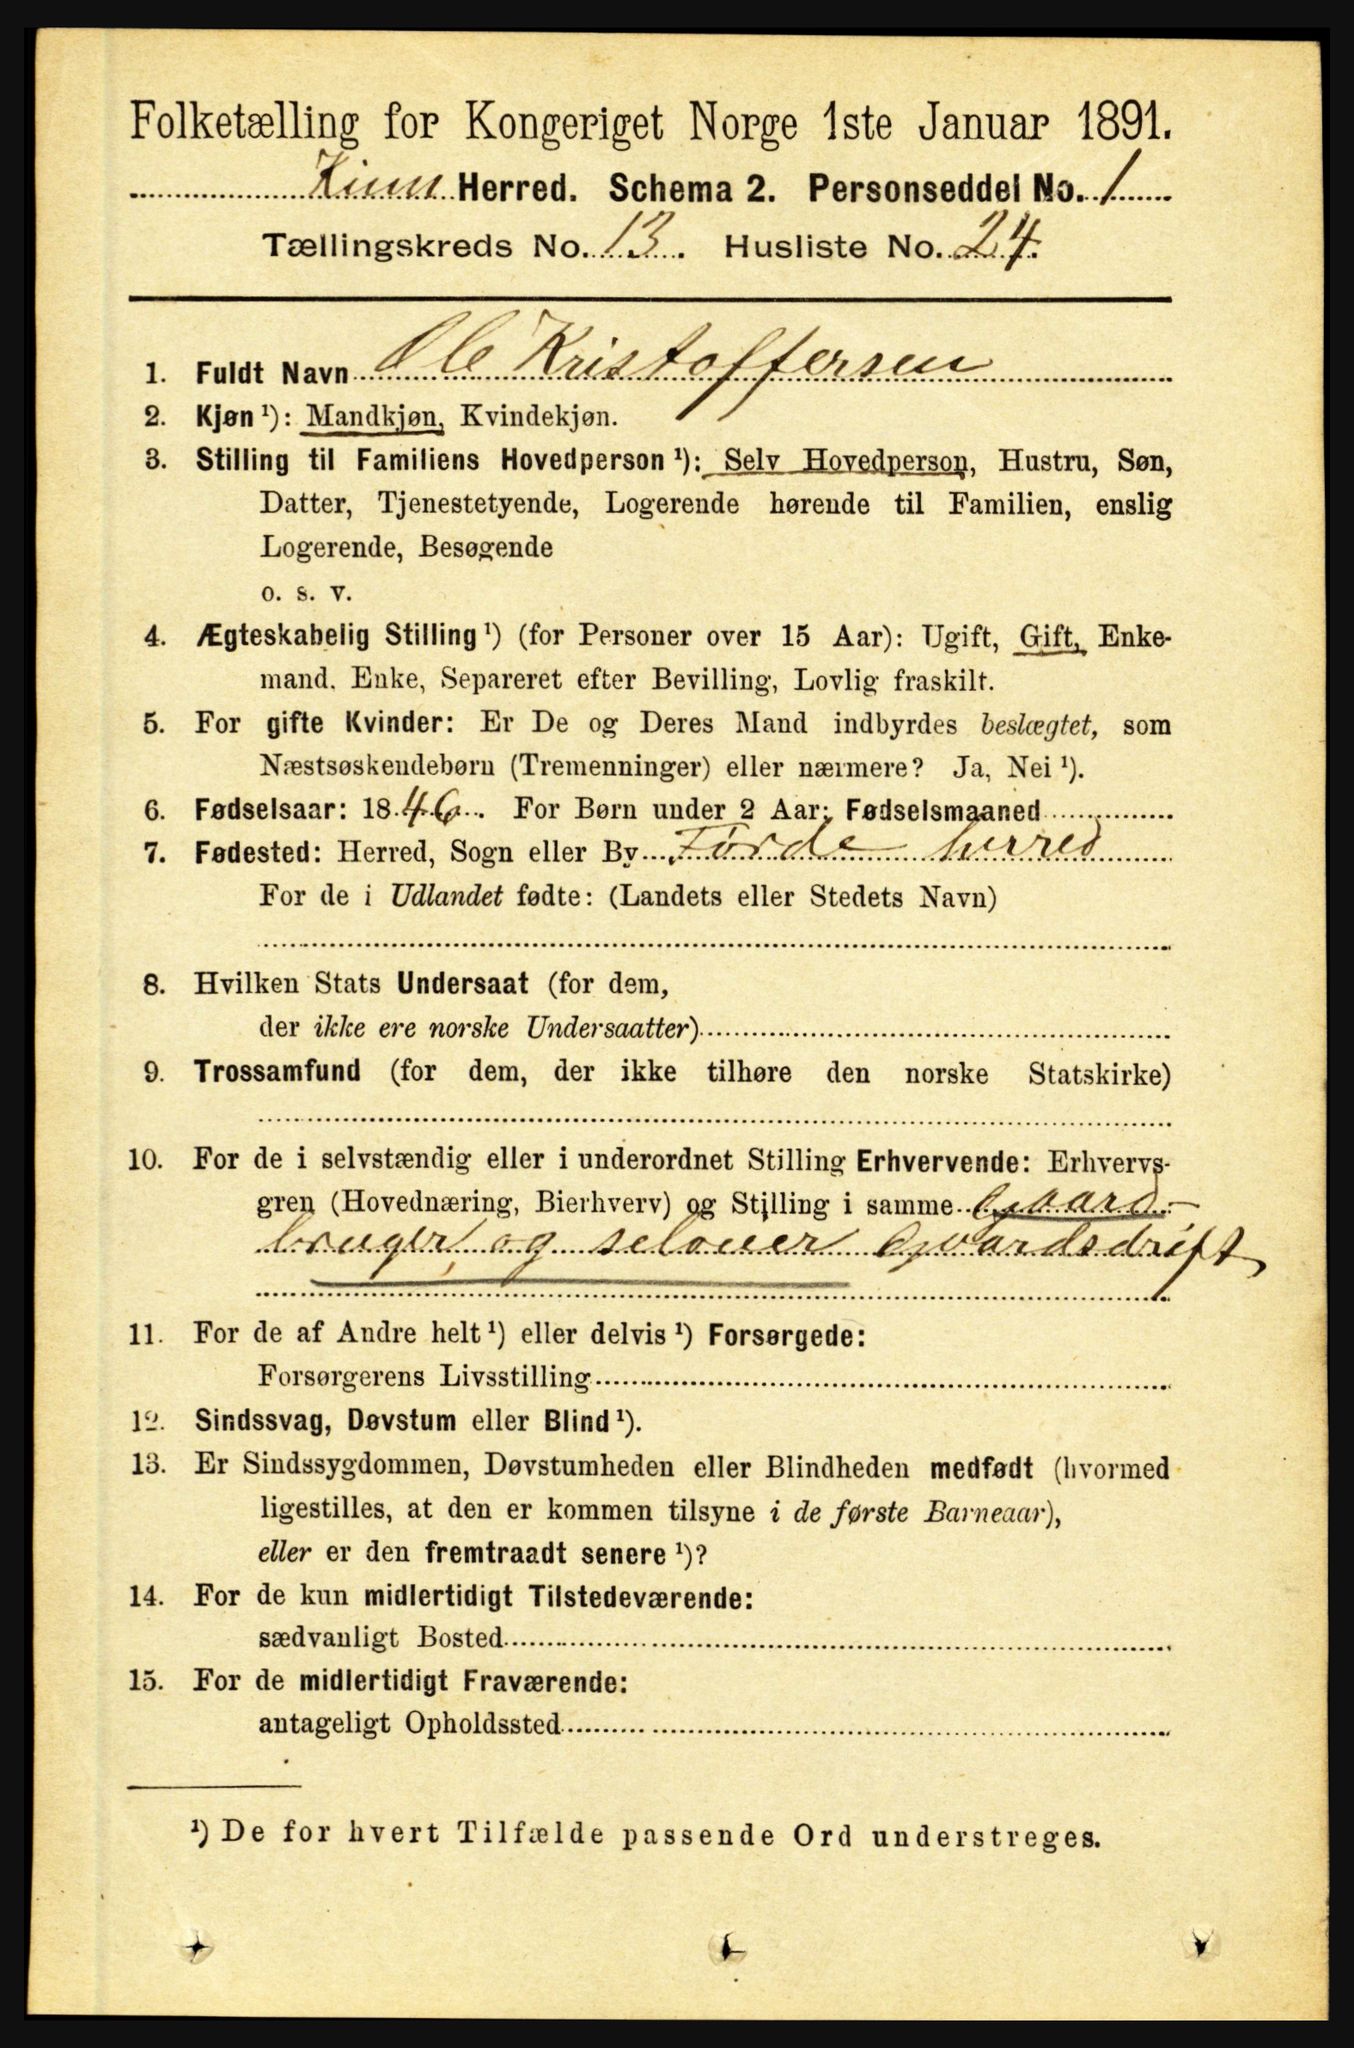 Folketælling for Kongeriget Norge 1ste Januar 1891.
Kinn Herred. Schema 2. Personseddel No. 1
Tællingskreds No. 13. Husliste No. 24.
1. Fuldt Navn Ole Kristoffersen
2. Kjøn ¹): Mandkjøn, Kvindekjøn.
3. Stilling til Familiens Hovedperson ¹): Selv Hovedperson, Hustru, Søn,
Datter, Tjenestetyende, Logerende hørende til Familien, enslig
Logerende, Besøgende
o. s. v.
4. Ægteskabelig Stilling ¹) (for Personer over 15 Aar): Ugift, Gift, Enke-
mand. Enke, Separeret efter Bevilling, Lovlig fraskilt.
5. For gifte Kvinder: Er De og Deres Mand indbyrdes beslægtet, som
Næstsøskendebørn (Tremenninger) eller nærmere? Ja, Nei ¹).
6. Fødselsaar: 1846. For Børn under 2 Aar: Fødselsmaaned
7. Fødested: Herred, Sogn eller By Førde herred
For de i Udlandet fødte: (Landets eller Stedets Navn)
8. Hvilken Stats Undersaat (for dem,
der ikke ere norske Undersaatter)
9. Trossamfund (for dem, der ikke tilhøre den norske Statskirke)
10. For de i selvstændig eller i underordnet Stilling Erhvervende: Erhvervs-
gren (Hovednæring, Bierhverv) og Stilling i samme Gaard-
bruger, og selouer Gaardsdrift
11. For de af Andre helt ¹) eller delvis ¹) Forsørgede:
Forsørgerens Livsstilling
12. Sindssvag, Døvstum eller Blind ¹).
13. Er Sindssygdommen, Døvstumheden eller Blindheden medfødt (hvormed
ligestilles, at den er kommen tilsyne i de første Barneaar),
eller er den fremtraadt senere ¹)?
14. For de kun midlertidigt Tilstedeværende:
sædvanligt Bosted
15. For de midlertidigt Fraværende:
antageligt Opholdssted
¹) De for hvert Tilfælde passende Ord understreges.